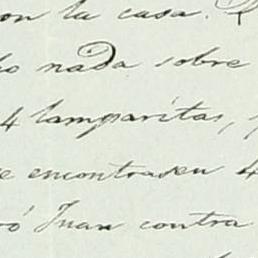 on la casa.
nada sobre
4 lamparitas,
e encontrasen 4
ó Juan contra